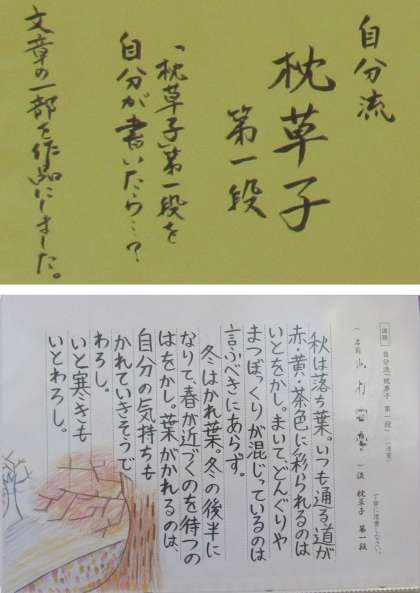 自分流
枕草子
第一段
「枕草子」第一段を
自分が書いたら…?
文章の一部を作品にしました。
課題 自分流「枕草子 第一段」(清書)
丁寧に清書しなさい。
(名前 小村
)流 枕草子 第一段
秋は落ち葉。いつも通る道が
赤・黄・茶色に彩られるのは
いとをかし。まいて、どんぐりや
まつぼっくりが混じっているのは
言ふべきにあらず。
冬はかれ葉。冬の後半に
なりて、春が近づくのを待つの
はをかし。葉がかれるのは、
自分の気持ちも
かれていきそうで
わろし。
いと寒きも
いとわろし。